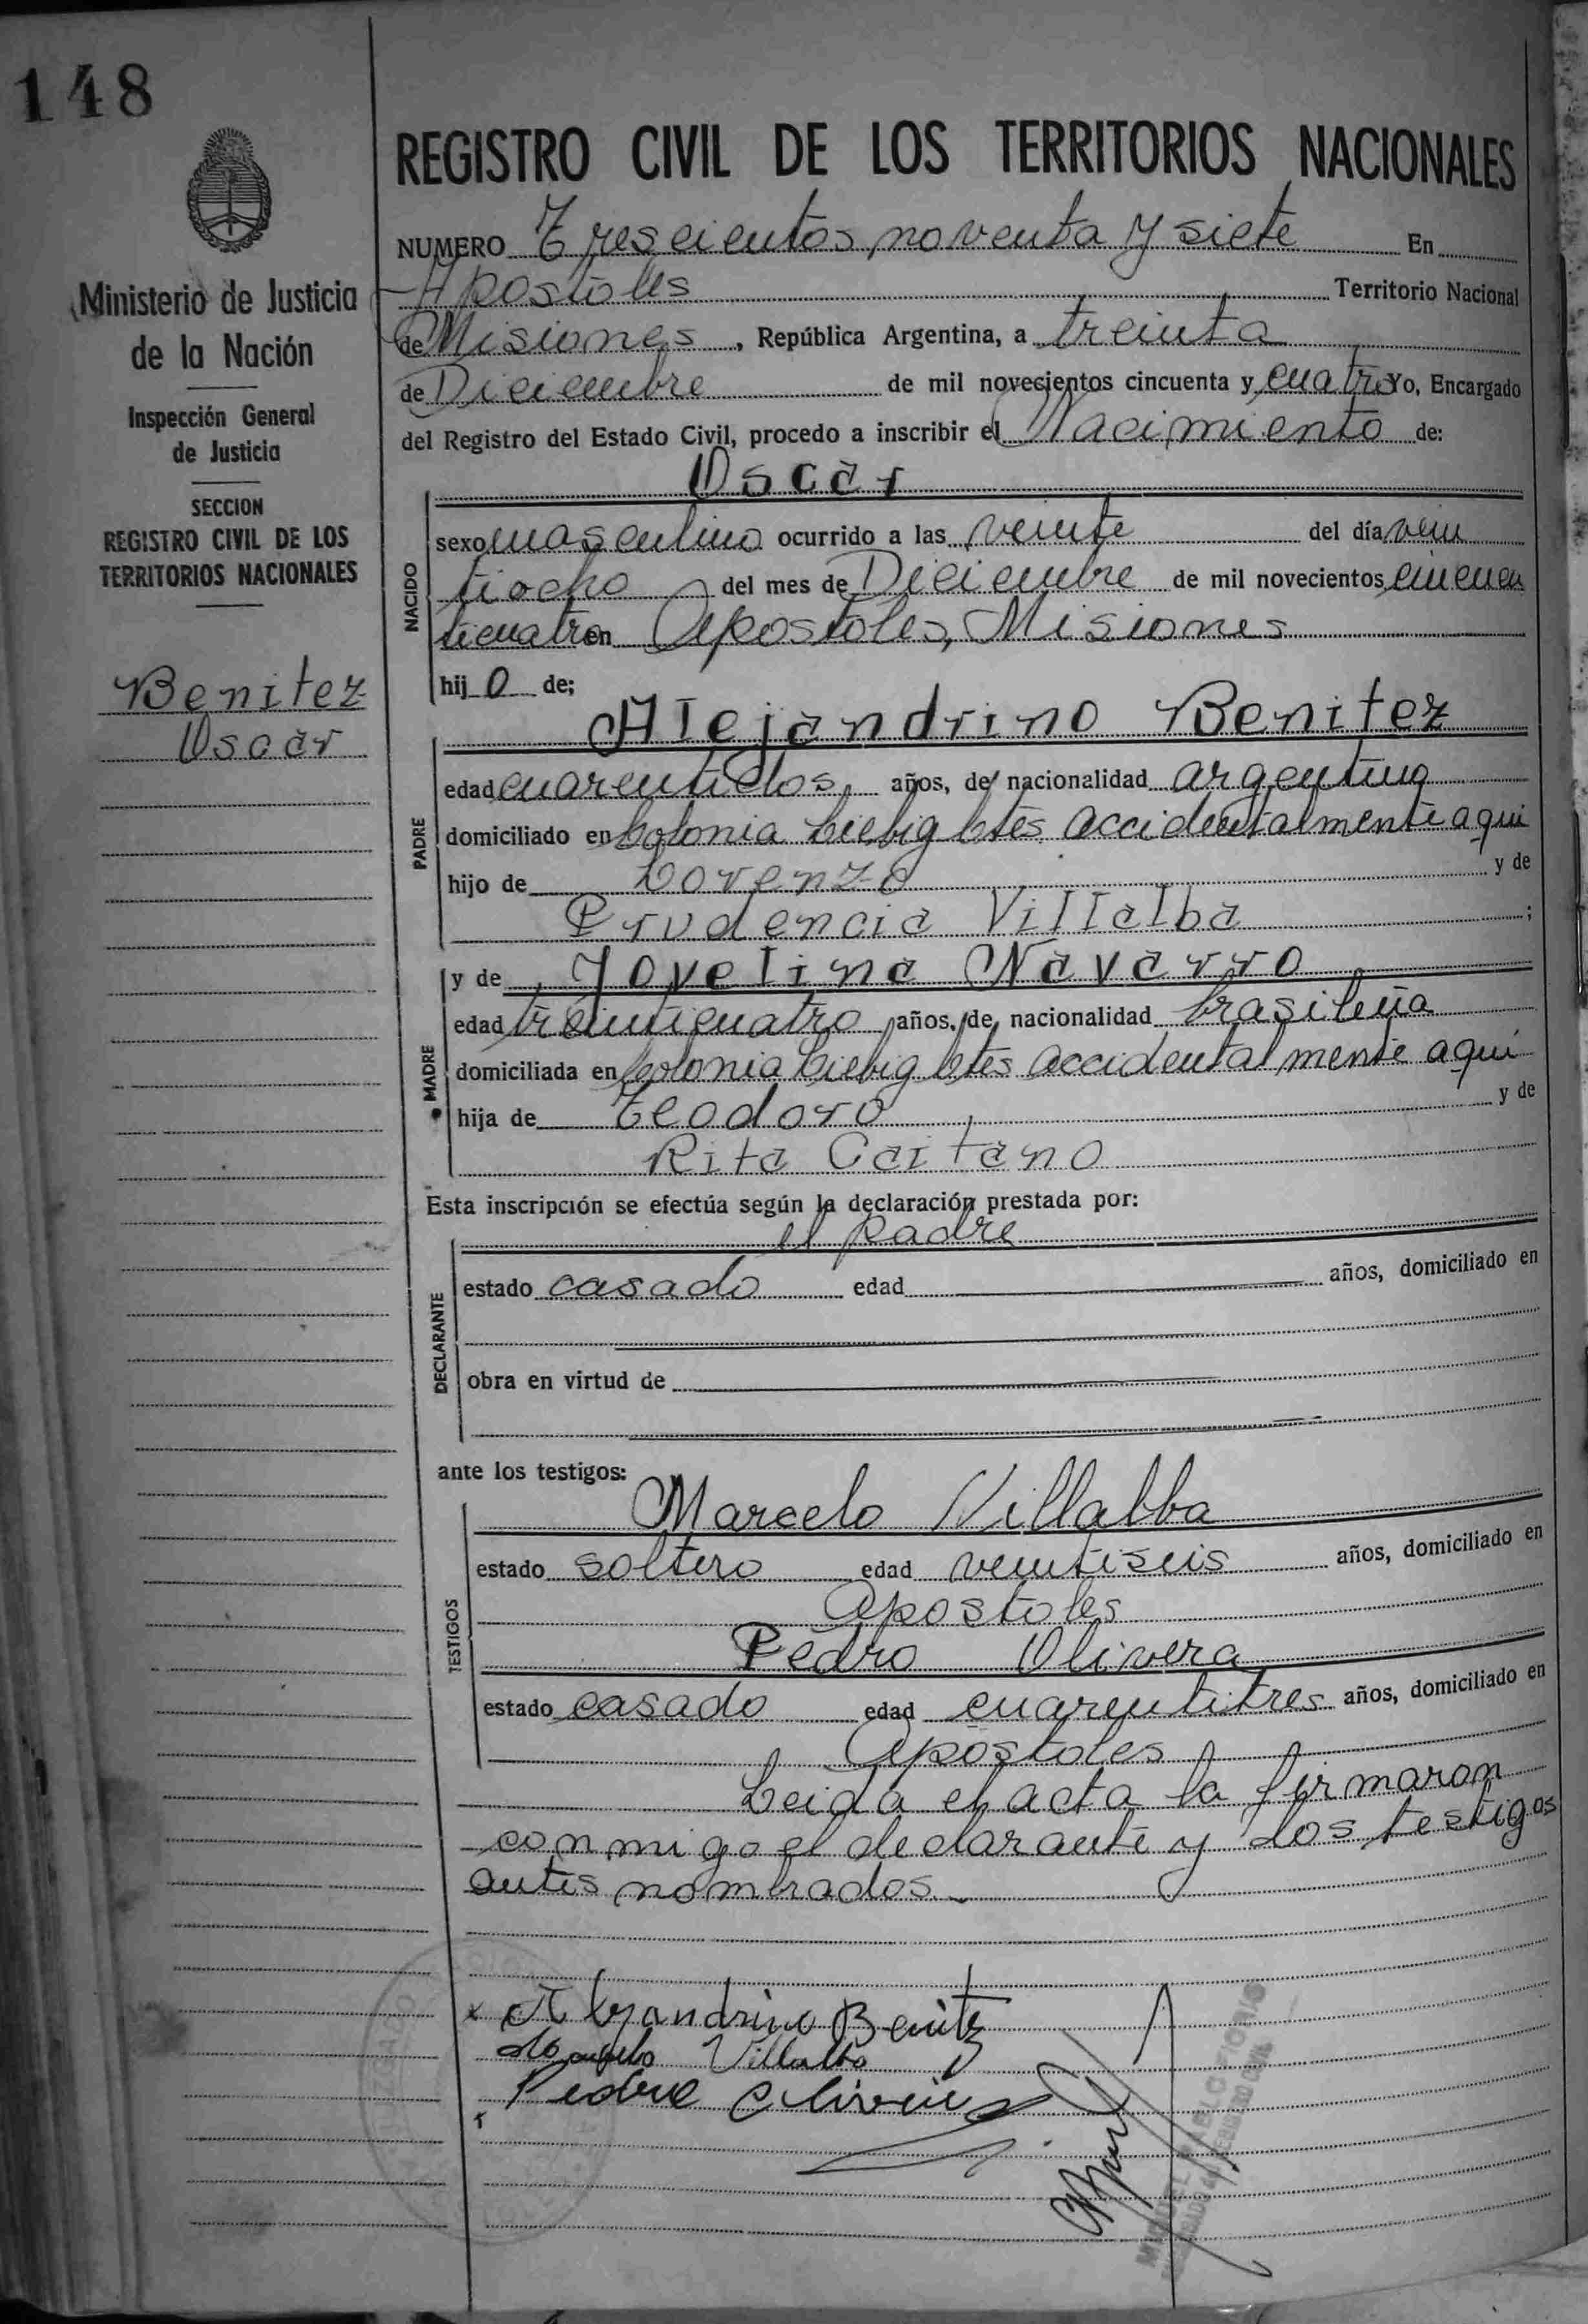 148
REGISTRO CIVIL DE LOS TERRITORIOS NACIONALES
Ministerio de Justicia
de la Nación
Inspección General
de Justicia
SECCION
REGISTRO CIVIL DE LOS
TERRITORIOS NACIONALES
Benitez
Oscar
NUMERO Trescientos noventa y siete En
Apostoles Territorio Nacional
de Misiones, República Argentina, a treinta
de Diciembre de mil novecientos cincuenta y cuatro Yo, Encargado
del Registro del Estado Civil, procedo a inscribir el Nacimiento de:
Oscar
NACIDO
sexo masculino ocurrido a las veinte del día vein
tiocho del mes de Diciembre de mil novecientos cincuen
ticuatro en Apostoles, Misiones
hij o de;
Alejandrino Benitez
PADRE
edad cuarentidos años, de nacionalidad argentina
domiciliado en Colonia Liebig Ctes accidentalmente aqui
hijo de Lorenzo y de
Prudencia Villalba ;
y de Jovelina Navarro
MADRE
edad treinticuatro años, de nacionalidad brasileña
domiciliada en Colonia Liebig Ctes accidentalmente aqui
hija de Teodoro y de
Rita Caitano
Esta inscripción se efectúa según la declaración prestada por:
el padre
DECLARANTE
estado casado edad años, domiciliado en
obra en virtud de
ante los testigos:
Marcelo Villalba
TESTIGOS
estado soltero edad veintiseis años, domiciliado en
Apostoles
Pedro Olivera
estado casado edad cuarentitres años, domiciliado en
Apostoles
Leida el acta la firmaron
conmigo el declarante y los testigos
antes nombrados.-
x Alejandrino Benitez
Marcelo Villalba
Pedro Olivera